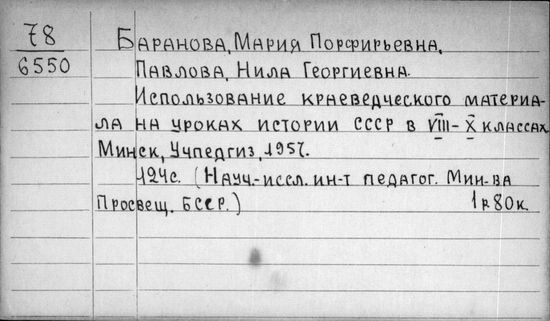 78
6550
Баранова, Мария Порфирьевна,
Павлова, Нила Георгиевна.
Использование краеведческого материа-
ла на уроках истории СССР в VIII-X классах
Минск, Учпедгиз, 1957.
124с. (Науч.-иссл. ин-т педагог. Мин-ва
Просвещ. БССР.) 1р80к.